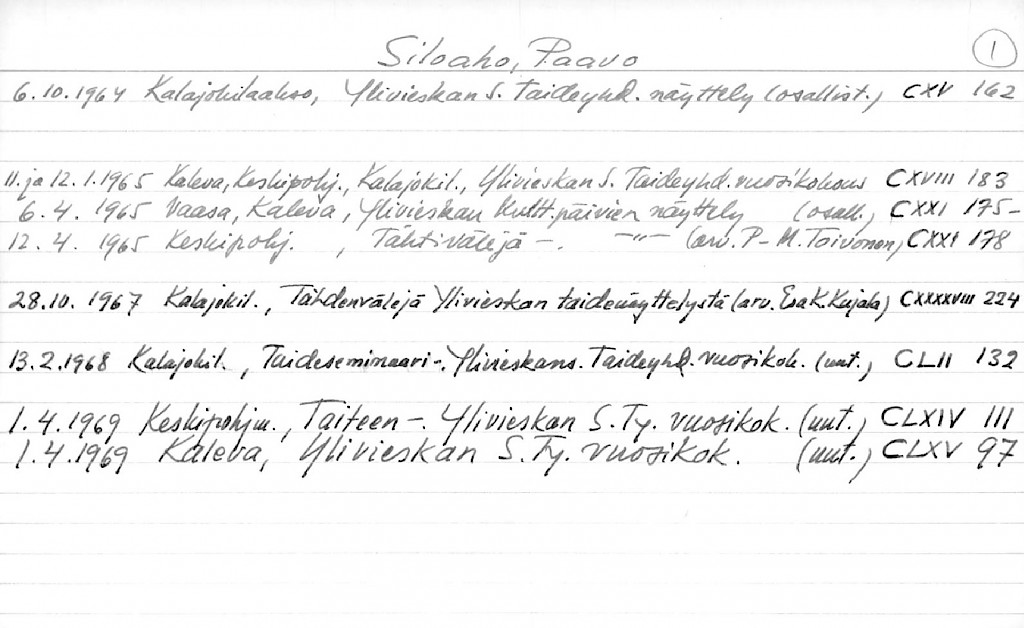 Siloaho, Paavo
1
6.10.1964 Kalajokilaakso, Ylivieskan S. Taideyhd. näyttely (osallist.) CXV 162
11. ja 12.1.1965 Kaleva, Keskipohj., Kalajokil., Ylivieskan S. Taideyhd. vuosikokous CXVIII 183
6.4. 1965 Vaasa, Kaleva, Ylivieskan Kultt.päivien näyttely (osall.) CXXI 175-
12.4. 1965 Keskipohj. , Tähtivälejä -. -"- (arv. P-M. Toivonen) CXXI 178
28.10. 1967 Kalajokil., Tähdenvälejä Ylivieskan taidenäyttelystä (arv. Esa K. Kujala) CXXXXVIII 224
13.2.1968 Kalajokil. , Taideseminaari-. Ylivieskan S. Taideyhd. vuosikok. (uut.) CLII 132
1.4.1969 Keskipohjm., Taiteen -. Ylivieskan S.Ty. vuosikok. (uut.) CLXIV 111
1.4.1969 Kaleva, Ylivieskan S.Ty. vuosikok. (uut.) CLXV 97